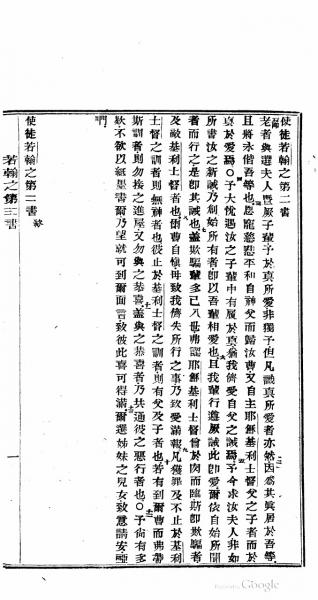 使徒若翰之第二書
老者與選夫人暨厥子輩予於真所愛非獨予但凡識真所愛者亦然因爲其真居於吾等
且將永偕吾等也恩寵慈悲平和自神父而歸汝曹又自主耶穌基利士督父之子者而於
真於愛焉○予大忱遇汝之子輩中有履於真猶我儕受自父之誡焉予今求汝夫人非如
所書汝之新誡乃創始所有者卽以吾輩相愛也且我輩行遵厥誡此卽愛爾依自始所聞
者而行之是卽其誡也蓋欺騙輩多已入世弗認耶穌基利士督曾於肉而臨斯卽欺騙者
及敵基利士督者也爾曹自愼毋致我儕失所行之事乃致受滿報凡獲罪及不止於基利
士督之訓者則無神者也彼止於基利士督之訓則有父及子者也若有到爾曹而弗帶
斯訓者則勿接之進屋又勿與之恭喜蓋與之恭喜者乃共通彼之惡行者也○予尚有多
欵不欲以紙墨書爾乃望就可到爾面言致彼此喜可得滿爾選姊妹之兒女致意請安啞
使徒若翰之第二書 終
若翰之第二書 一
Google